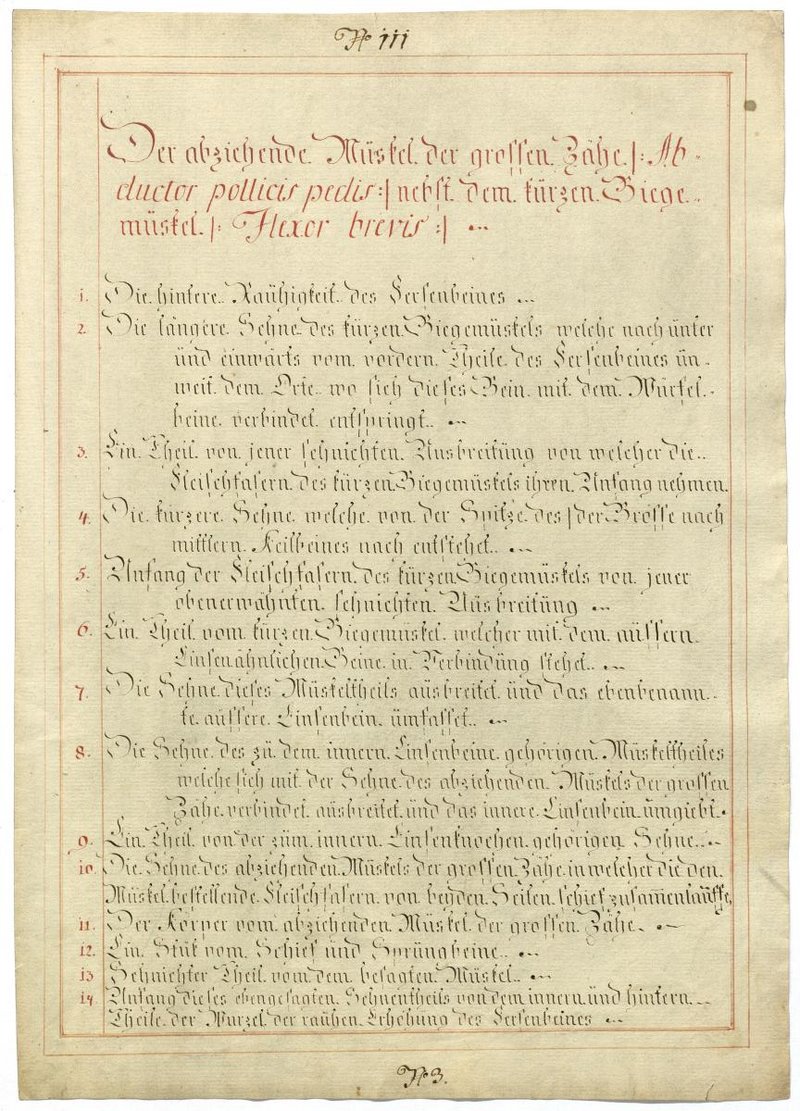 No III
Der abziehende Müskel der grossen Zähe |: Ab-
ductor pollicis pedis :| nebst dem kürzen Biege-
müskel |: Flexor brevis :|
1. Die hintere Raühigkeit des Fersenbeines
2. Die längere Sehne des kürzen Biegemüskels welche nach ünter
ünd einwärts vom vordern Theile des Fersenbeines ün-
weit dem Orte wo sich dieses Bein mit dem Würfel-
beine verbindet entspringt
3. Ein Theil von jener sehnichten Aüsbreitüng von welcher die
Fleischfasern des kürzen Biegemüskels ihren Anfang nehmen
4. Die kürzere Sehne welche von der Spitze des |der Grösse nach
mittlern Keilbeines nach entstehet
5. Anfang der Fleischfasern des kürzen Biegemüskels von jener
obenerwähnten sehnichten Aüsbreitüng
6. Ein Theil vom kürzen Biegemüskel welcher mit dem aüssern
Linsenähnlichen Beine in Verbindüng stehet
7. Die Sehne dieses Müskeltheils aüsbreitet ünd das ebenbenann-
te aüssere Linsenbein ümfasset
8. Die Sehne des zü dem innern Linsenbeine gehörigen Müskeltheiles
welche sich mit der Sehne des abziehenden Müskels der grossen
Zähe verbindet aüsbreitet und das innere Linsenbein ümgiebt
9. Ein Theil von der züm innern Linsenknochen gehörigen Sehne
10. Die Sehne des abziehenden Müskels der grossen Zähe in welcher die den
Müskel bestellende Fleischfasern von beyden Seiten schief zusam̅enlaüffe
11. Der Körper vom abziehenden Müskel der grossen Zähe
12. Ein Stük vom Schief und Sprüngbeine
13 Sehnichter Theil vom dem besagten Müskel
14. Anfang dieses ebengesagten Sehnentheils von dem innern ünd hintern
Theile der Wurzel der raühen Erhöhüng des Fersenbeines
No 3.